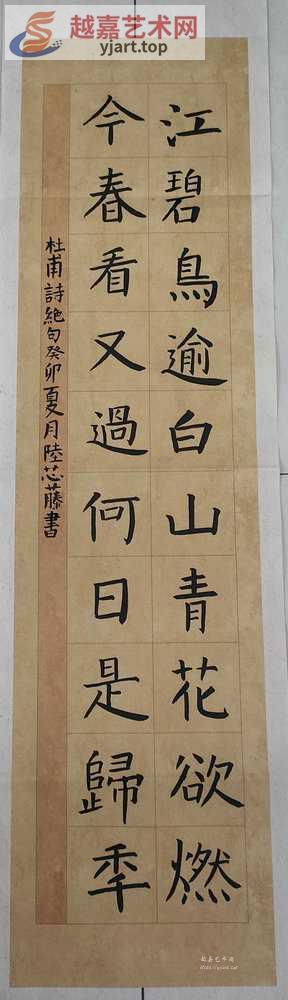 越嘉艺术网
yjart.top
江碧鳥逾白山青花欲燃
今春看又過何日是歸秊
杜甫詩絶句癸卯夏月陸芯藤書
越嘉艺术网